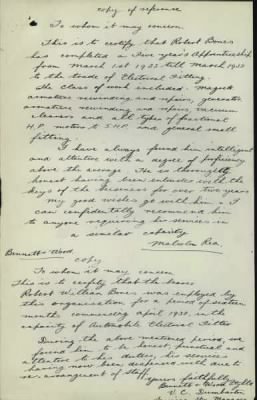 copy of reference
To whom it may concern.
This is to certify that Robert Bones
has completed a five year's Apprenticeship
from March 1st 1933 till March 1938
to the trade of Electrical Fitting.
The class of work included. Magneto
armature rewinding and repairs, generator
armatures rewinding and repairs, vacuum
cleaners and all types of fractional
H.P. motors to 5 H.P. and general small
fitting.
I have always found him intelligent
and attentive with a degree of proficiency
above the average. He is thoroughly
honest having been entrusted with the
keys of the business for over two years
my good wishes go with him & I
can confidentally recommend him
to anyone requiring his services in
a similar capacity
Malcolm Rea.
Bennett & Wood.
copy
To whom it may concern
This is to certify that the bearer
Robert William Bones was employed by
this organisation for a period of sixteen
months commencing april 1938, in the
capacity of Automobile Electrical Fitter
During the above mentioned period, we
found him to be honest, punctual and
attentive to his duties, his services
having now been dispensed with due to
re-arrangement of staff.
Yours faithfully
Bennett & Wood
V. C. Dumbarton